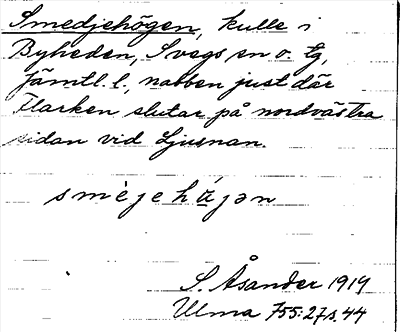 Smedjehögen, kulle i
Byheden, Svegs sn o. tg,
Jämtl. l., nabben just där
Flarken slutar på nordvästra
sidan vid Ljusnan.
smèjehä́jən
S. Åsander 1919
Ulma 755:27 s. 44